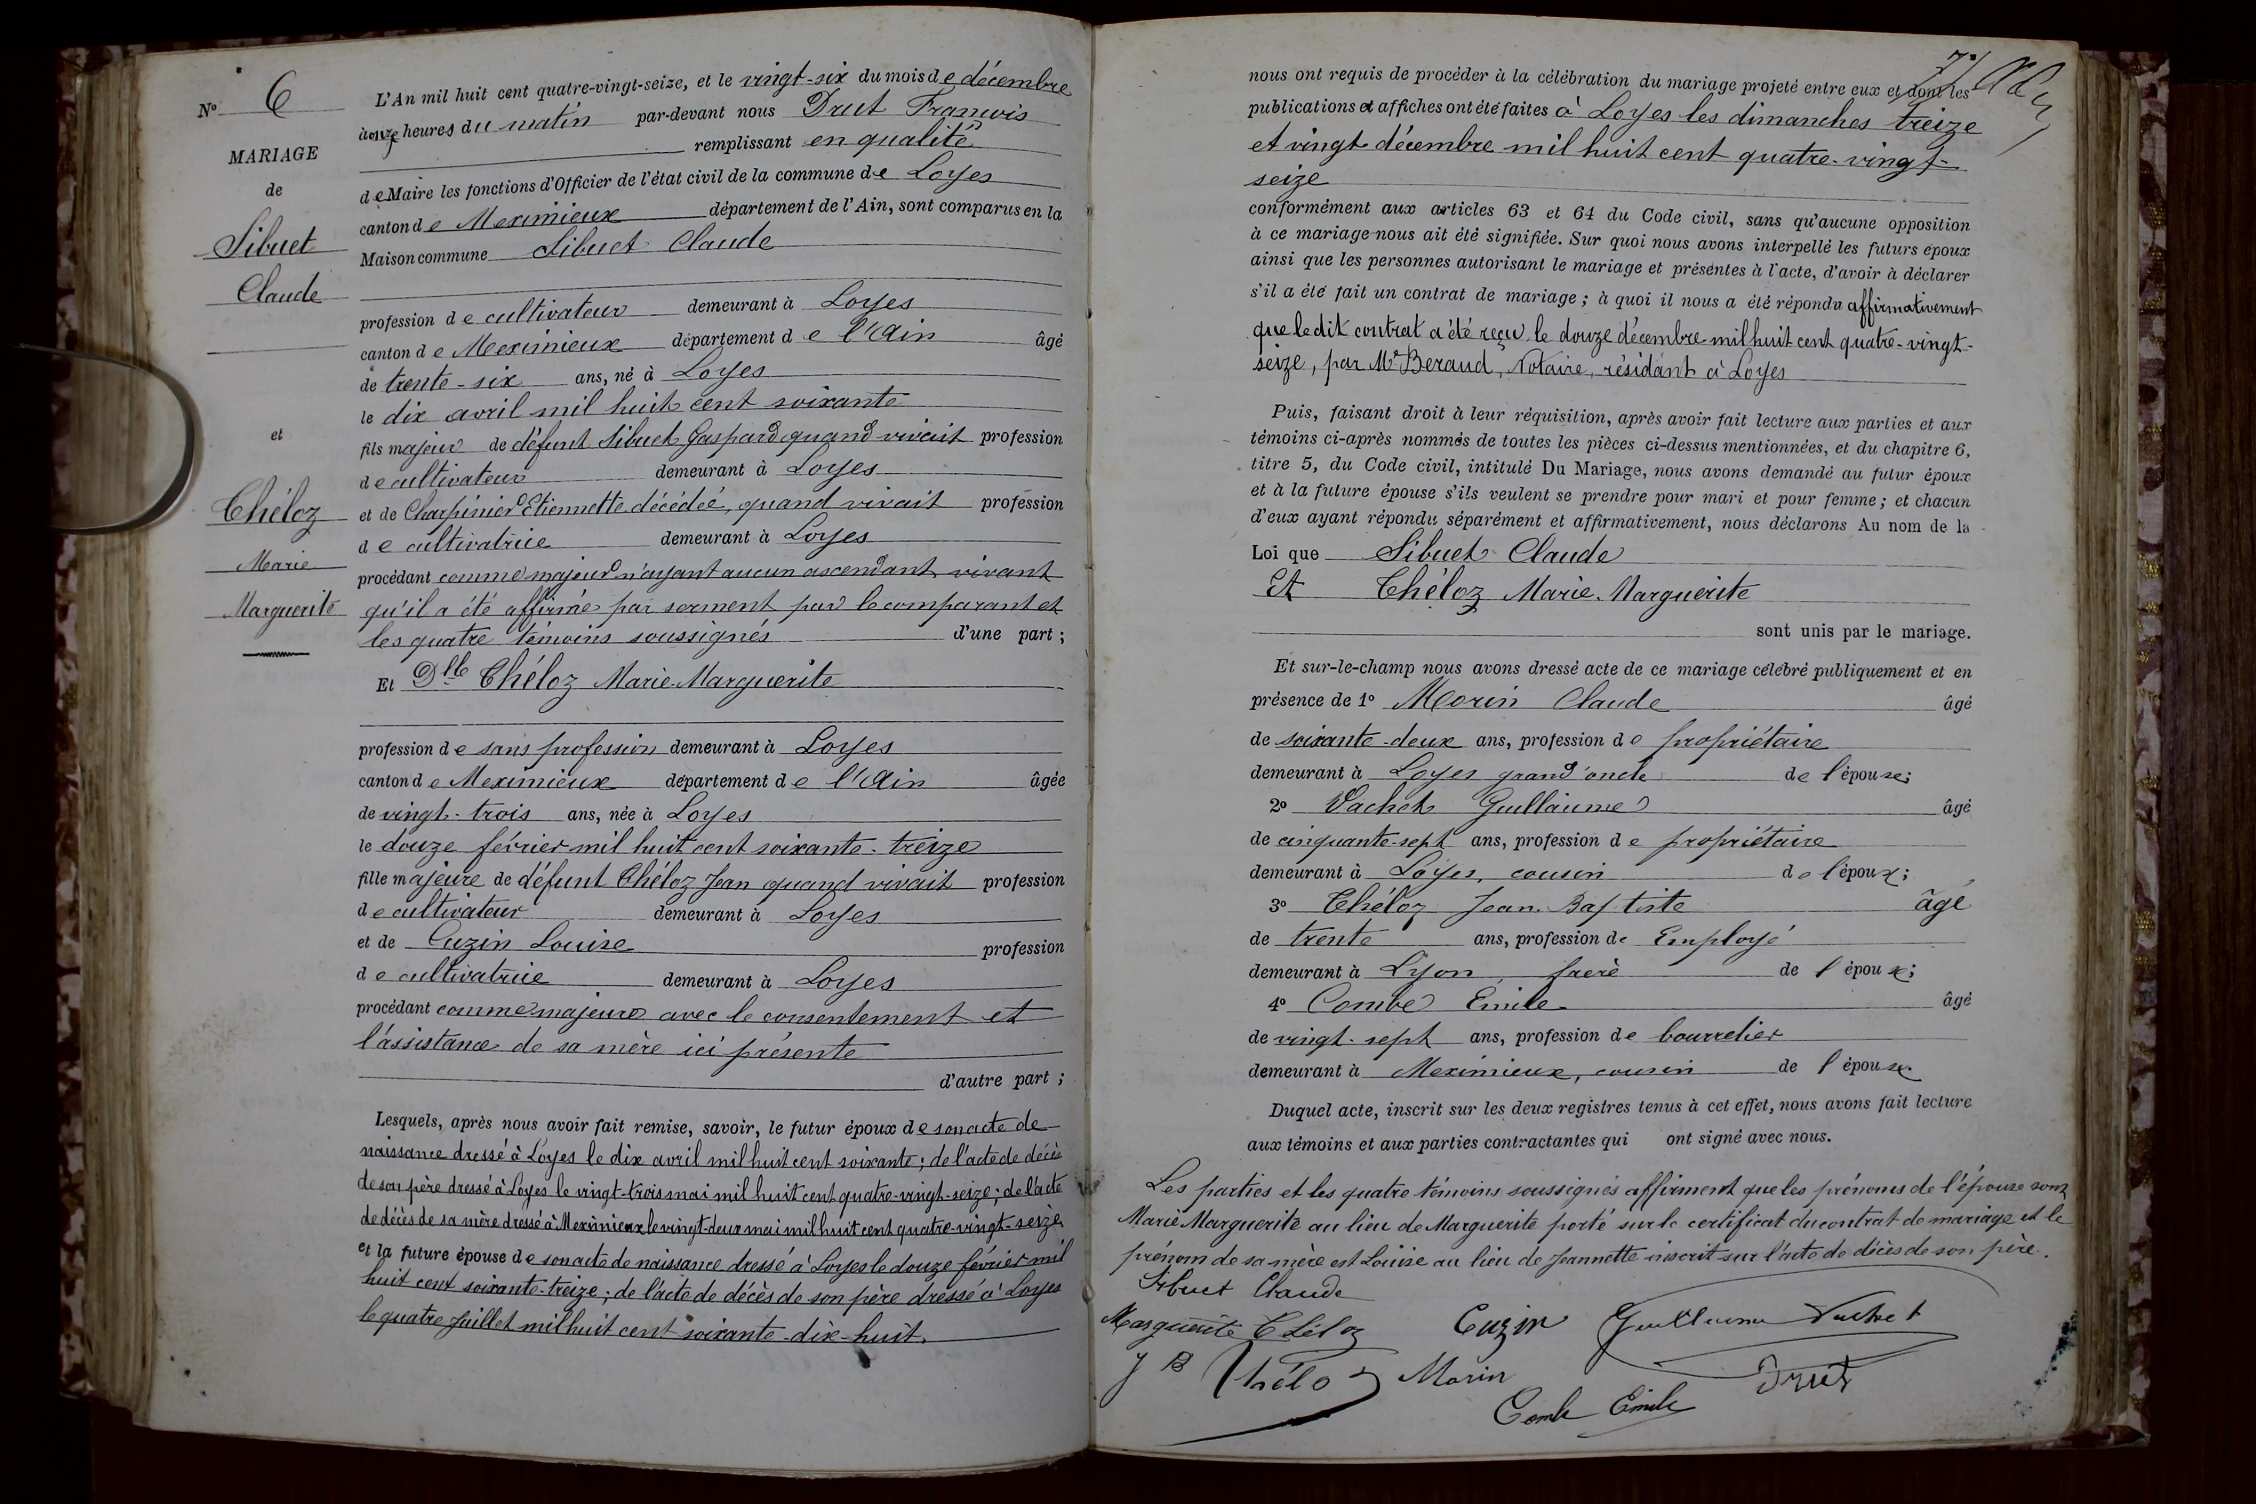 N° 6
MARIAGE
de
Sibuet
Claude
et
Théloz
Marie
Marguerite
L'An mil huit cent quatre-vingt-seize, et le vingt-six du mois de décembre
à onze heures du matin par-devant nous Drut François
remplissant en qualité
de Maire les fonctions d'Officier de l'état civil de la commune de Loyes
canton de Meximieux département de l'Ain, sont comparus en la
Maison commune Sibuet Claude
profession de cultivateur demeurant à Loyes
canton de Meximieux département de l'Ain âgé
de trente-six ans, né à Loyes
le dix avril mil huit cent soixante
fils majeur de défunt Sibuet Gaspard quand vivait profession
de cultivateur demeurant à Loyes
et de Charpinier Etiennette décédée, quand vivait profession
de cultivatrice demeurant à Loyes
procédant comme majeur n'ayant aucun ascendant vivant
qu'il a été affirmé par serment par le comparant et
les quatre témoins soussignés d'une part ;
Et Dlle Théloz Marie-Marguerite
profession de sans profession demeurant à Loyes
canton de Meximieux département de l'Ain âgée
de vingt-trois ans, née à Loyes
le douze février mil huit cent soixante-treize
fille majeure de défunt Théloz Jean quand vivait profession
de cultivateur demeurant à Loyes
et de Cuzin Louise profession
de cultivatrice demeurant à Loyes
procédant comme majeure avec le consentement et
l'assistance de sa mère ici présente
d'autre part ;
Lesquels, après nous avoir fait remise, savoir, le futur époux de son acte de
naissance dressé à Loyes le dix avril mil huit cent soixante ; de l'acte de décès
de son père dressé à Loyes le vingt-trois mai mil huit cent quatre-vingt-seize ; de l'acte
de décès de sa mère dressé à Meximieux le vingt-deux mai mil huit cent quatre-vingt-seize
et la future épouse de son acte de naissance dressé à Loyes le douze février mil
huit cent soixante-treize ; de l'acte de décès de son père dressé à Loyes
le quatre Juillet mil huit cent soixante-dix-huit.
7
nous ont requis de procéder à la célébration du mariage projeté entre eux et dont les
publications et affiches ont été faites à Loyes les dimanches treize
et vingt décembre mil huit cent quatre-vingt-
seize
conformément aux articles 63 et 64 du Code civil, sans qu'aucune opposition
à ce mariage nous ait été signifiée. Sur quoi nous avons interpellé les futurs époux
ainsi que les personnes autorisant le mariage et présentes à l'acte, d'avoir à déclarer
s'il a été fait un contrat de mariage ; à quoi il nous a été répondu affirmativement
que le dit contrat a été reçu le douze décembre mil huit cent quatre-vingt-
seize, par Me Beraud, Notaire, résidant à Loyes
Puis, faisant droit à leur réquisition, après avoir fait lecture aux parties et aux
témoins ci-après nommés de toutes les pièces ci-dessus mentionnées, et du chapitre 6,
titre 5, du Code civil, intitulé Du Mariage, nous avons demandé au futur époux
et à la future épouse s'ils veulent se prendre pour mari et pour femme ; et chacun
d'eux ayant répondu séparément et affirmativement, nous déclarons Au nom de la
Loi que Sibuet Claude
Et Théloz Marie-Marguerite
sont unis par le mariage.
Et sur-le-champ nous avons dressé acte de ce mariage célébré publiquement et en
présence de 1° Morin Claude âgé
de soixante-deux ans, profession de propriétaire
demeurant à Loyes grand'oncle de l'épouse ;
2° Vachet Guillaume âgé
de cinquante-sept ans, profession de propriétaire
demeurant à Loyes, cousin de l'époux ;
3° Théloz Jean-Baptiste âgé
de trente ans, profession de Employé
demeurant à Lyon, frère de l'épouse ;
4° Combe Emile âgé
de vingt-sept ans, profession de bourrelier
demeurant à Meximieux, cousin de l'épouse
Duquel acte, inscrit sur les deux registres tenus à cet effet, nous avons fait lecture
aux témoins et aux parties contractantes qui ont signé avec nous.
Les parties et les quatre témoins soussignés affirment que les prénoms de l'épouse sont
Marie Marguerite au lieu de Marguerite porté sur le certificat du contrat de mariage et le
prénom de sa mère est Louise au lieu de Jeannette inscrit sur l'acte de décès de son père.
Sibuet Claude
Marguerite Théloz Cuzin Guillaume Vachet
J B Théloz Morin Drut
Combe Emile